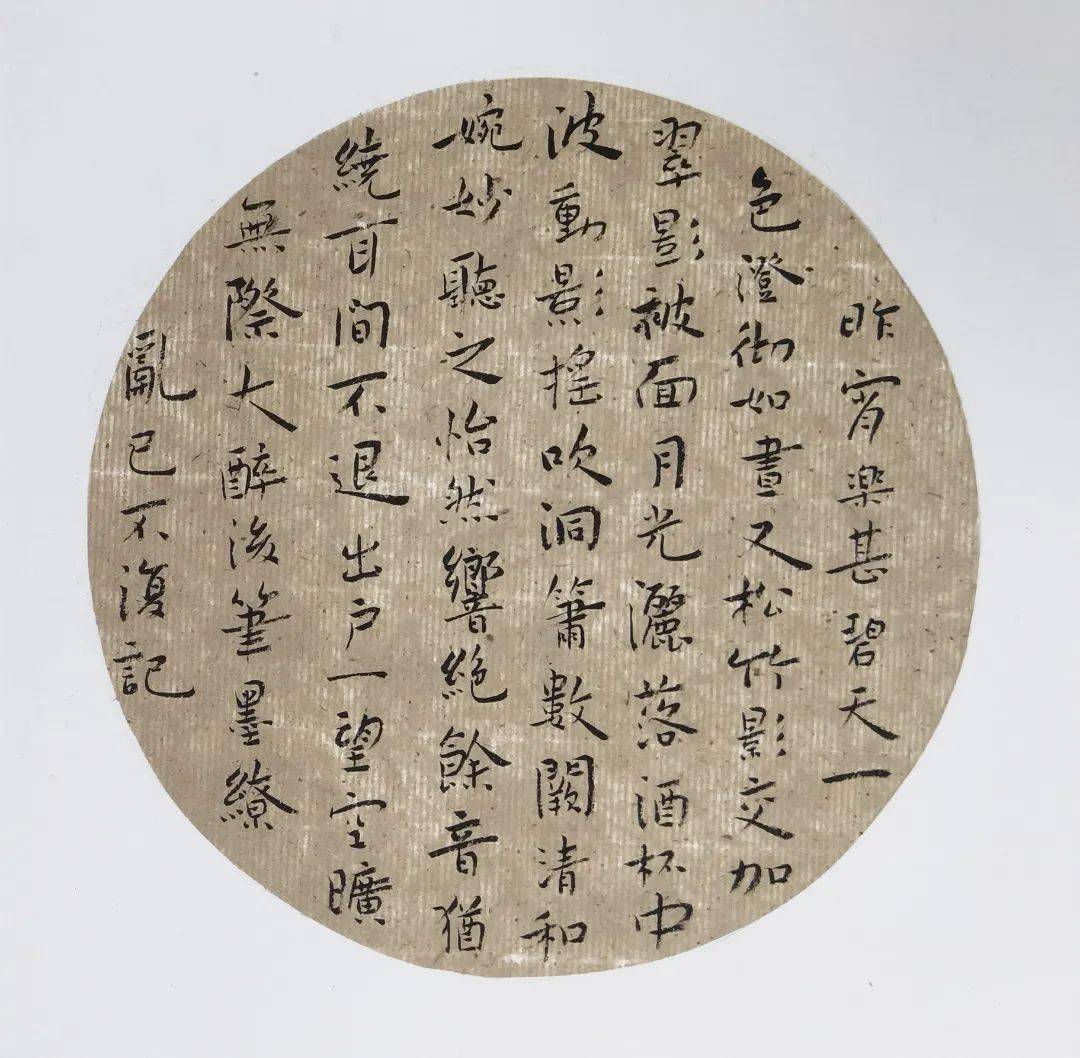 昨宵樂甚碧天一
色澄徹如晝又松竹影交加
翠影被面月光灑落酒杯中
波動影搖吹洞簫數闋清和
婉妙聽之怡然響絕餘音猶
繞耳間不退出戶一望空曠
無際大醉後筆墨繚
亂已不復記